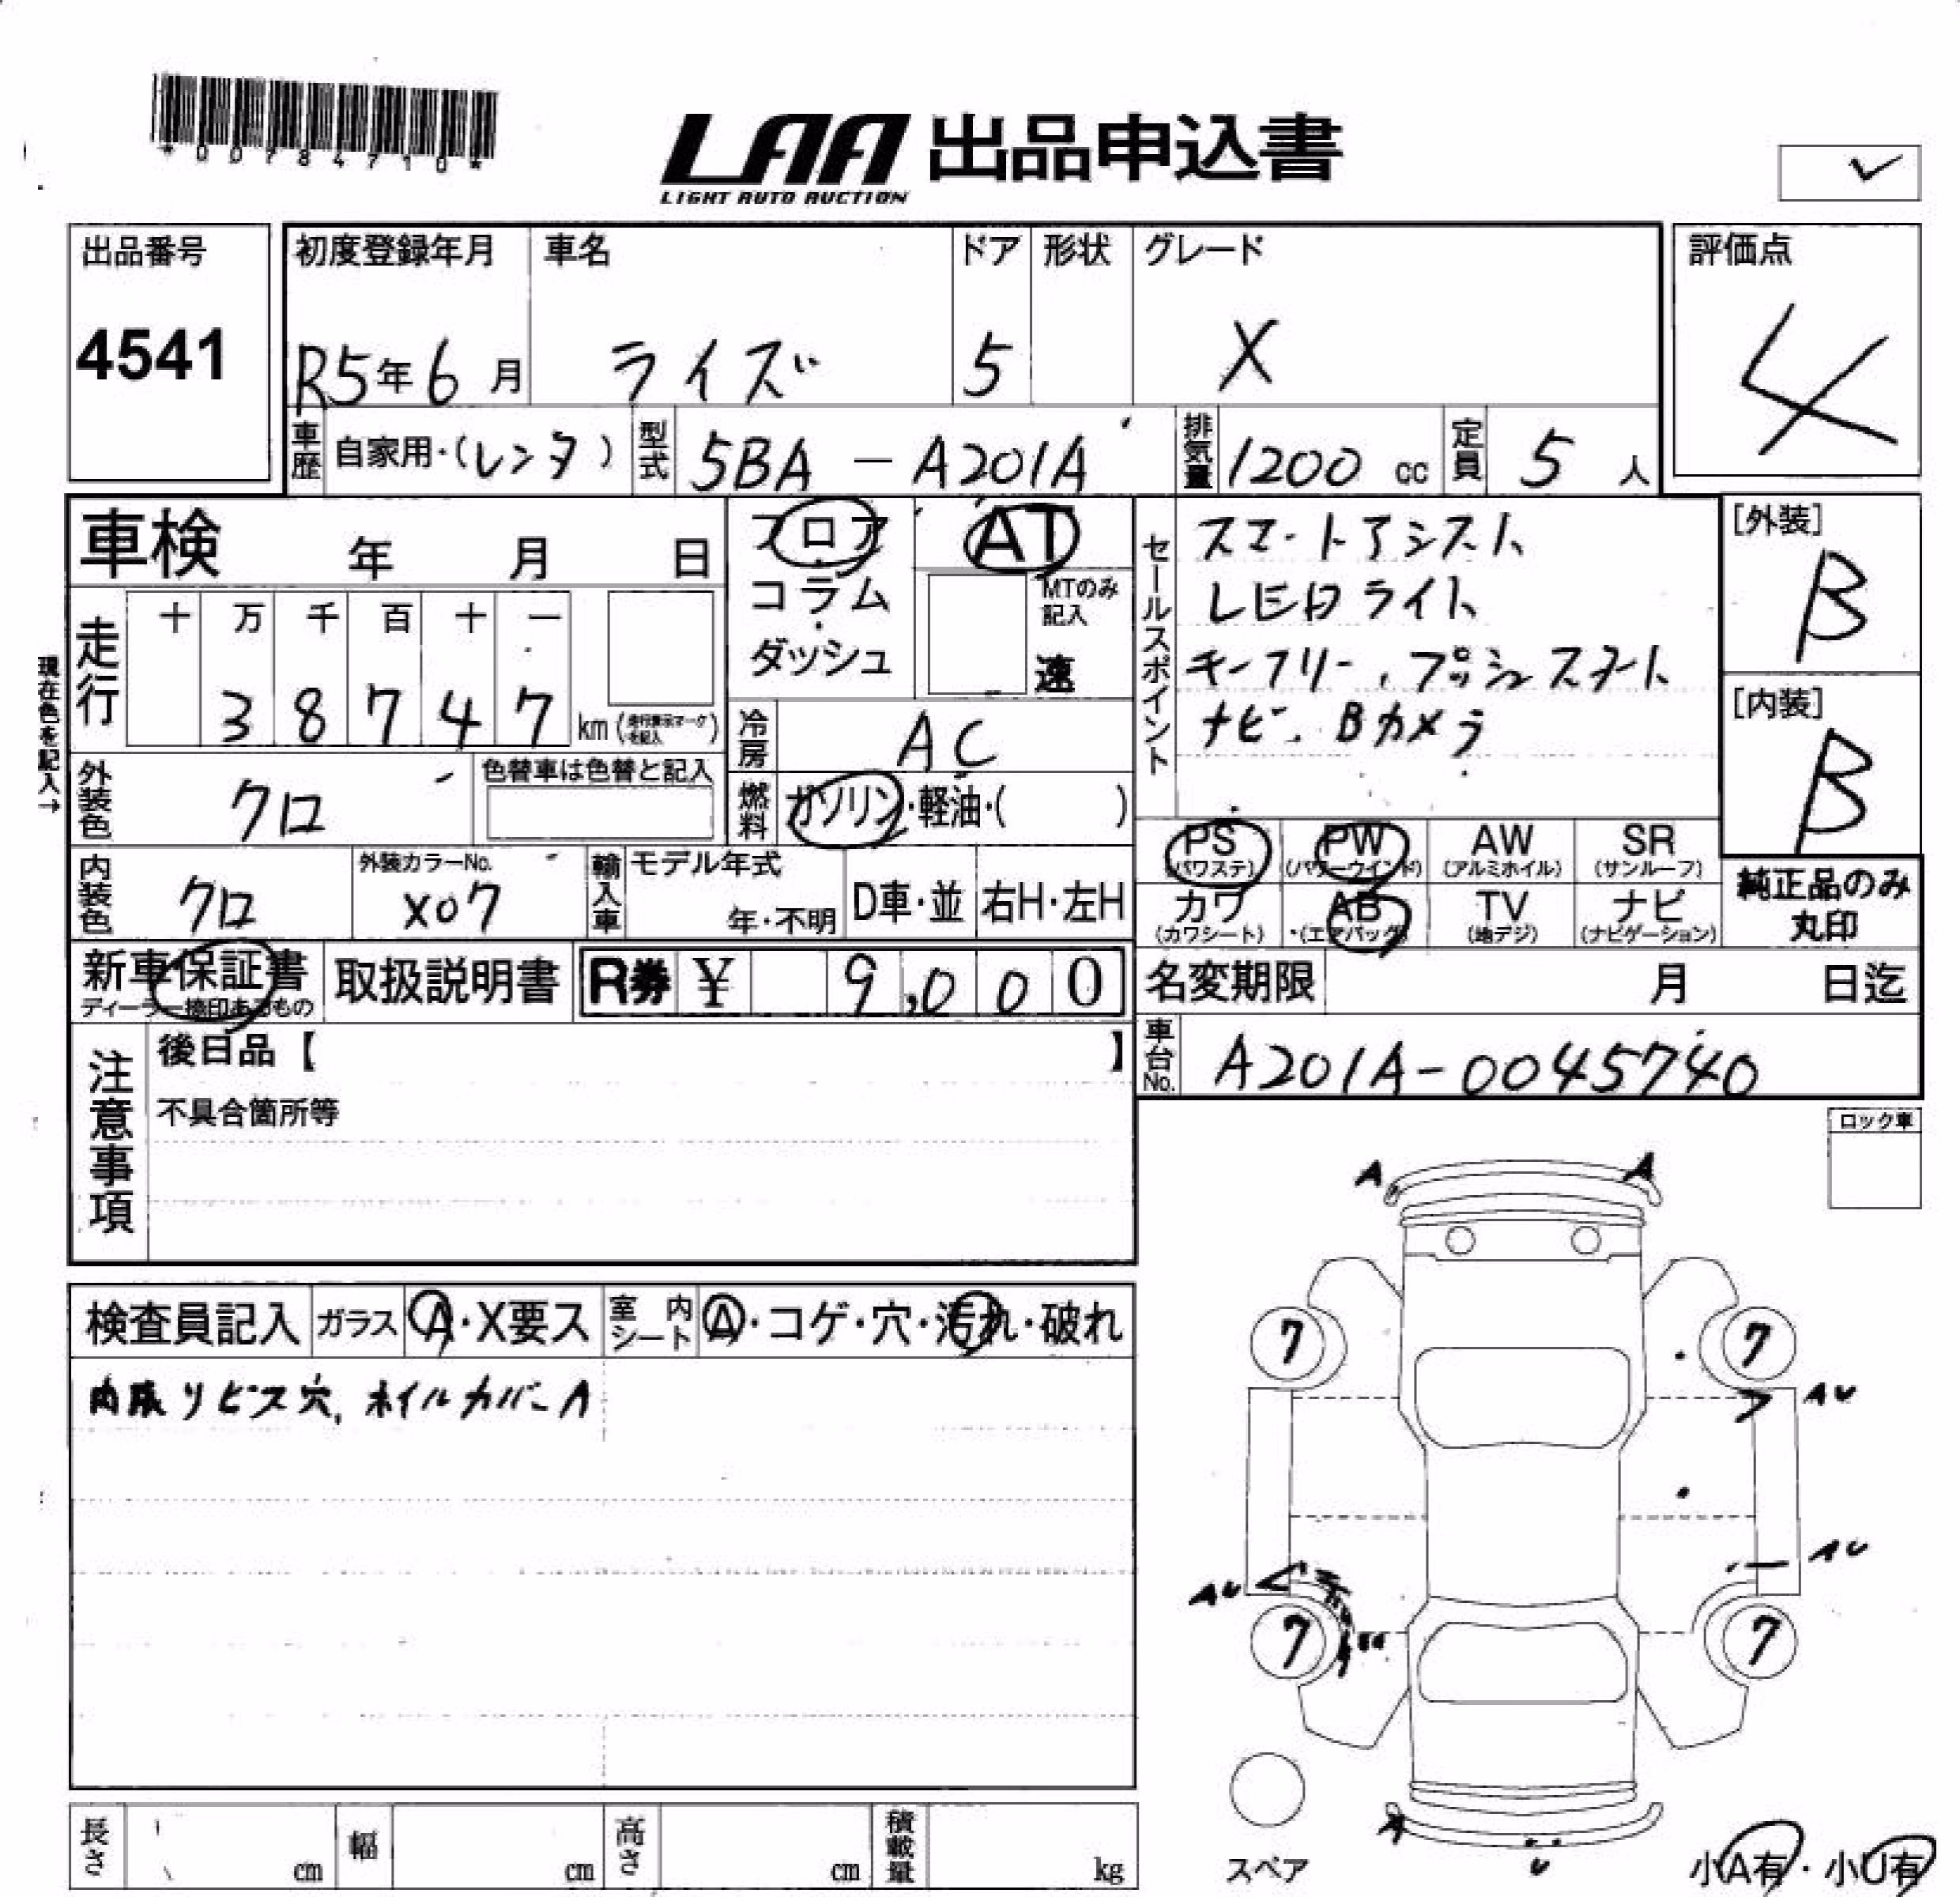 *00784710*
LAA 出品申込書
LIGHT AUTO AUCTION
出品番号
4541
初度登録年月
R5年6月
車名
ライズ
ドア
5
形状
グレード
X
評価点
4
車歴
自家用・(レンタ)
型式
5BA-A201A
排気量
1200 cc
定員
5 人
車検 年 月 日
フロア
コラム
ダッシュ
AT
MTのみ記入
速
セールスポイント
スマートアシスト
LEDライト
キーフリー、プッシュスタート
ナビ、Bカメラ
[外装]
B
[内装]
B
現在色を記入→
走行
十 万 千 百 十 一
3 8 7 4 7
km(走行表示マークを記入)
冷房
AC
外装色
クロ
色替車は色替と記入
燃料
ガソリン・軽油・( )
PS
(パワステ)
PW
(パワーウインド)
AW
(アルミホイル)
SR
(サンルーフ)
内装色
クロ
外装カラーNo.
X07
輸入車
モデル年式
年・不明
D車・並
右H・左H
カワ
(カワシート)
AB
(エアバッグ)
TV
(地デジ)
ナビ
(ナビゲーション)
純正品のみ
丸印
新車保証書
ディーラー捺印あるもの
取扱説明書
R券 ¥ 9,000
名変期限 月 日迄
車台No.
A201A-0045740
注意事項
後日品【 】
不具合箇所等
ロック車
検査員記入
ガラス
A・X要ス
室内シート
A・コゲ・穴・汚れ・破れ
内張リビス穴、ホイルカバーA
A A
7 7
AU
AU
AU
7 7
A
U
スペア
小A有・小U有
長さ cm
幅 cm
高さ cm
積載量 kg